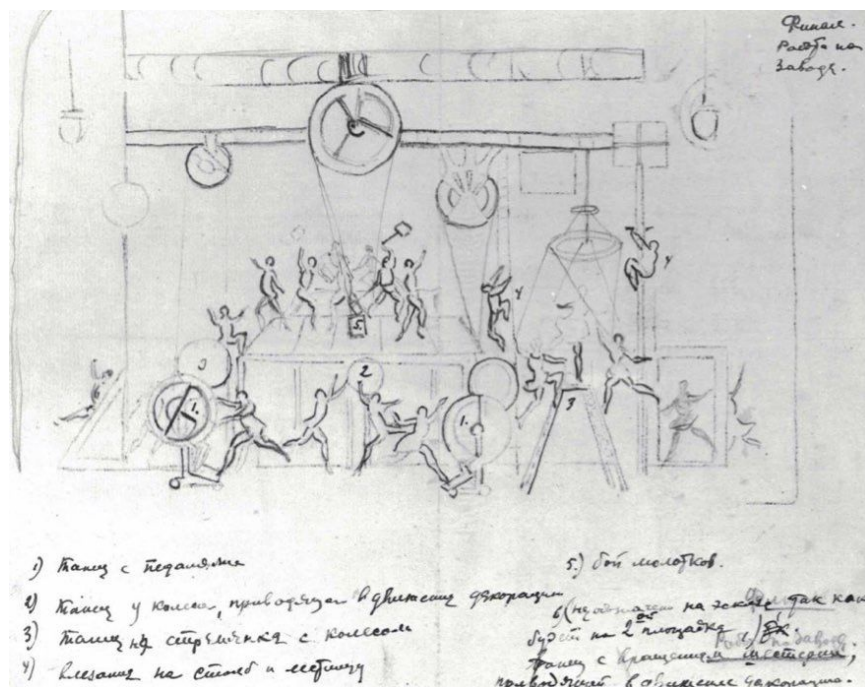 Финал.
Работа на
Заводе.
3
1.
5.
2
1.
3
4
4
1) Танец с педалями
2) Танец у колеса, приводящем в движение декорации
3) Танец на стремянке с колесом
4) влезания на столб и лестницу
5.) бой молотков.
6 (на эскизе так как
будет на 2ой площадке)
Танец с вращением шестерни,
приводящий в движение декорацию.